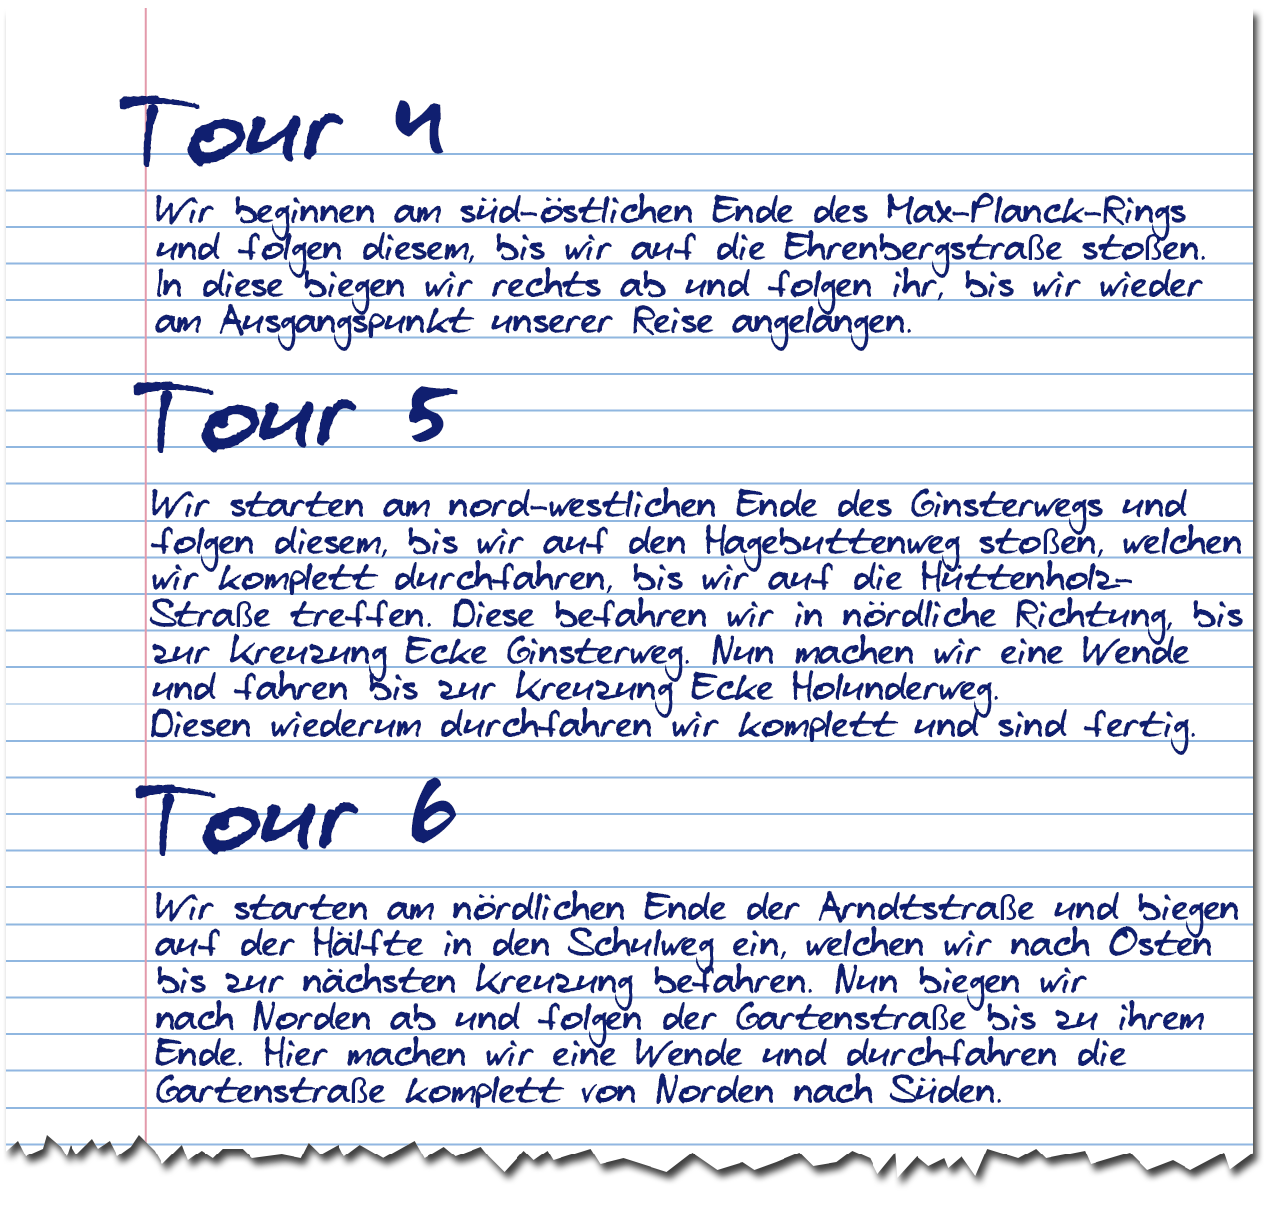 Tour 4
Wir beginnen am süd-östlichen Ende des Max-Planck-Rings
und folgen diesem, bis wir auf die Ehrenbergstraße stoßen.
In diese biegen wir rechts ab und folgen ihr, bis wir wieder
am Ausgangspunkt unserer Reise angelangen.
Tour 5
Wir starten am nord-westlichen Ende des Ginsterwegs und
folgen diesem, bis wir auf den Hagebuttenweg stoßen, welchen
wir komplett durchfahren, bis wir auf die Hüttenholz-
Straße treffen. Diese befahren wir in nördliche Richtung, bis
zur Kreuzung Ecke Ginsterweg. Nun machen wir eine Wende
und fahren bis zur Kreuzung Ecke Holunderweg.
Diesen wiederum durchfahren wir komplett und sind fertig.
Tour 6
Wir starten am nördlichen Ende der Arndtstraße und biegen
auf der Hälfte in den Schulweg ein, welchen wir nach Osten
bis zur nächsten Kreuzung befahren. Nun biegen wir
nach Norden ab und folgen der Gartenstraße bis zu ihrem
Ende. Hier machen wir eine Wende und durchfahren die
Gartenstraße komplett von Norden nach Süden.